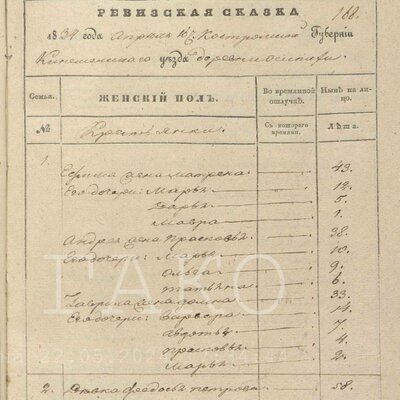 168.
РЕВИЗСКАЯ СКАЗКА
1834 года Апреля 16 Костромской Губерніи
Кинешемскаго уѣзда деревни
Семьи.
ЖЕНСКІЙ ПОЛЪ.
Во временной отлучкѣ.
Нынѣ на лицо.
№
Крестьянки.
Съ котораго времени.
Лѣта.
1.
жена Матрена 43.
Ея дочери: Марья 12.
Дарья 5.
Мавра 1.
Андрея жена Прасковья 38.
Ея дочери: Марья 10.
Ольга 9.
Татьяна 6.
Гаврила жена Домна 33.
Ея дочери: Варвара 14.
Авдотья 7.
Прасковья 4.
Марья 2.
ГАКО
2. Вдова Федосья Петрова 58.